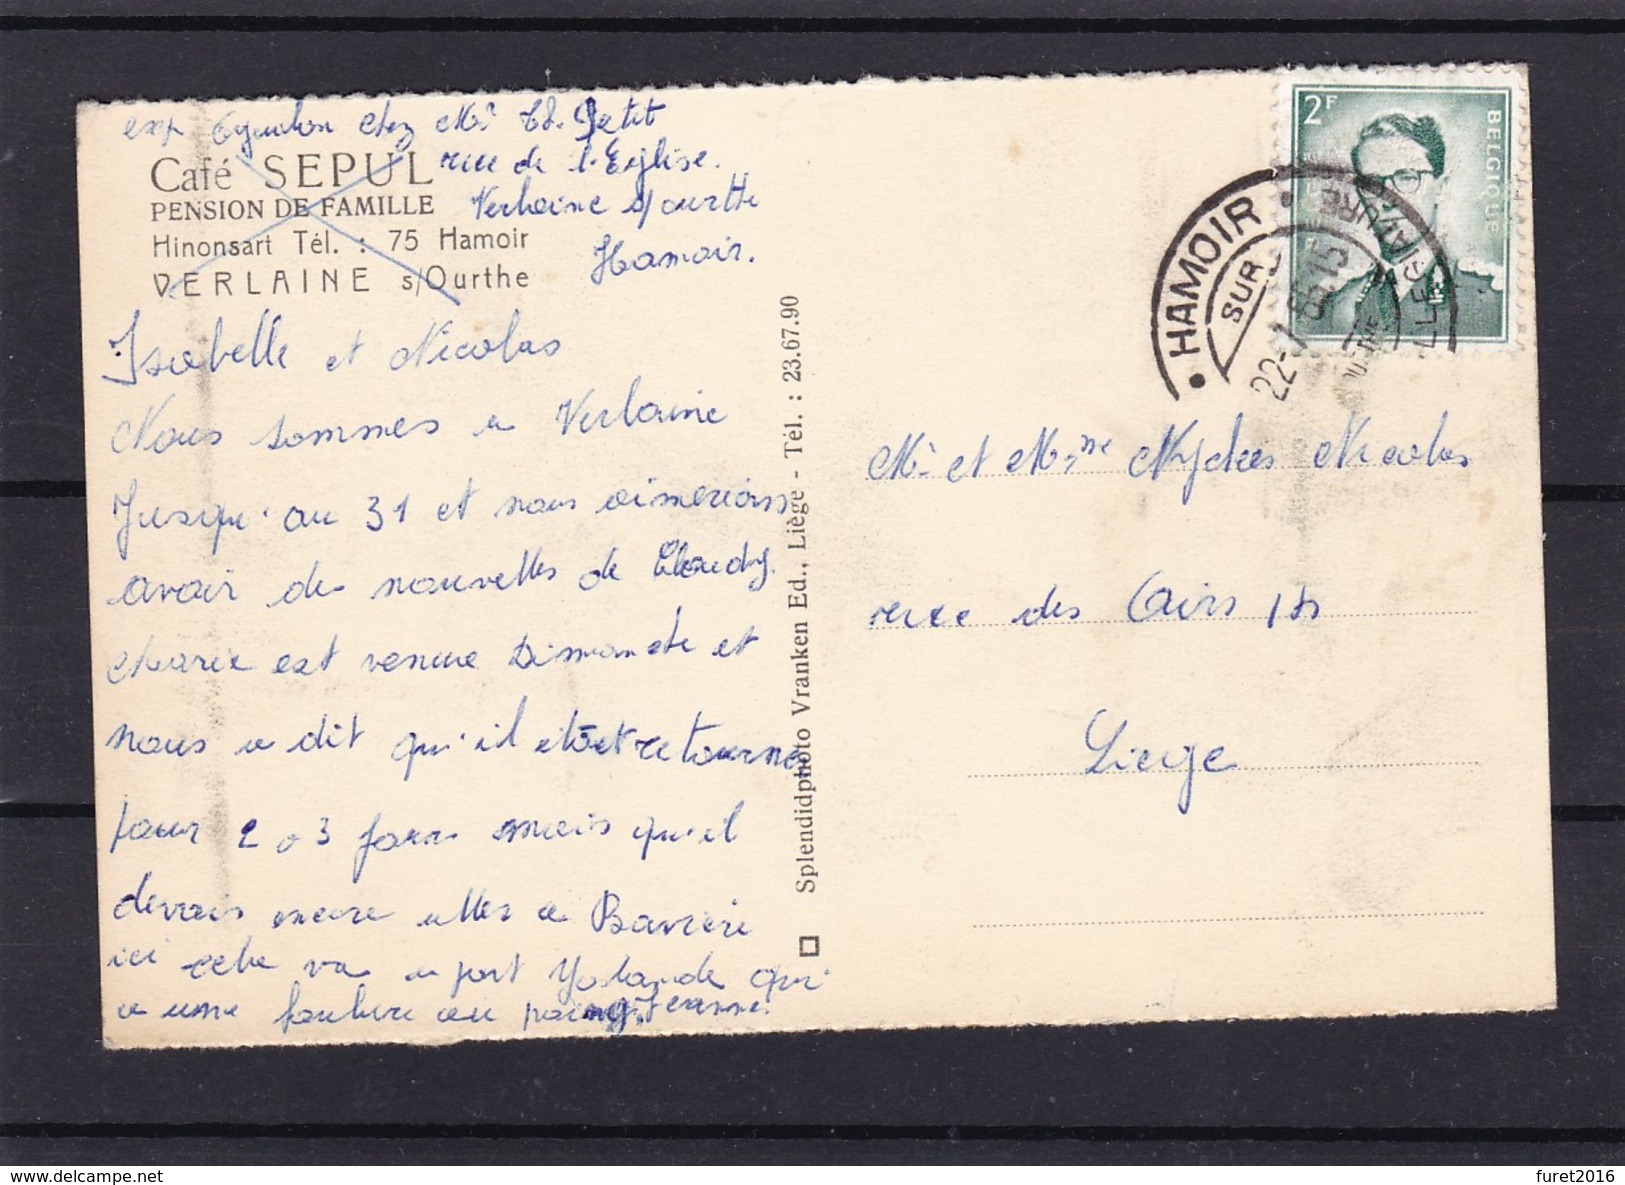 exp chez Mr Petit
rue de l'Eglise.
Verlaine s/ourthe
Hamoir.
Café SEPUL
PENSION DE FAMILLE
Hinonsart Tél. : 75 Hamoir
VERLAINE s/Ourthe
Isabelle et Nicolas
Nous sommes a Verlaine
Jusqu'au 31 et nous aimerions
avoir des nouvelles de
est venue Dimanche et
nous a dit qu'il retourne
pour 2 o 3 jours mais qu'il
devais encore alles a Bavière
ici va Yolande qui
a une au Jeanne.
Splendidphoto Vranken Ed., Liège - Tél. : 23.67.90
2F
BELGIQUE
HAMOIR
SUR
22-7
15
Mr et Mme Nicolas
rue des
Liege
furet2016